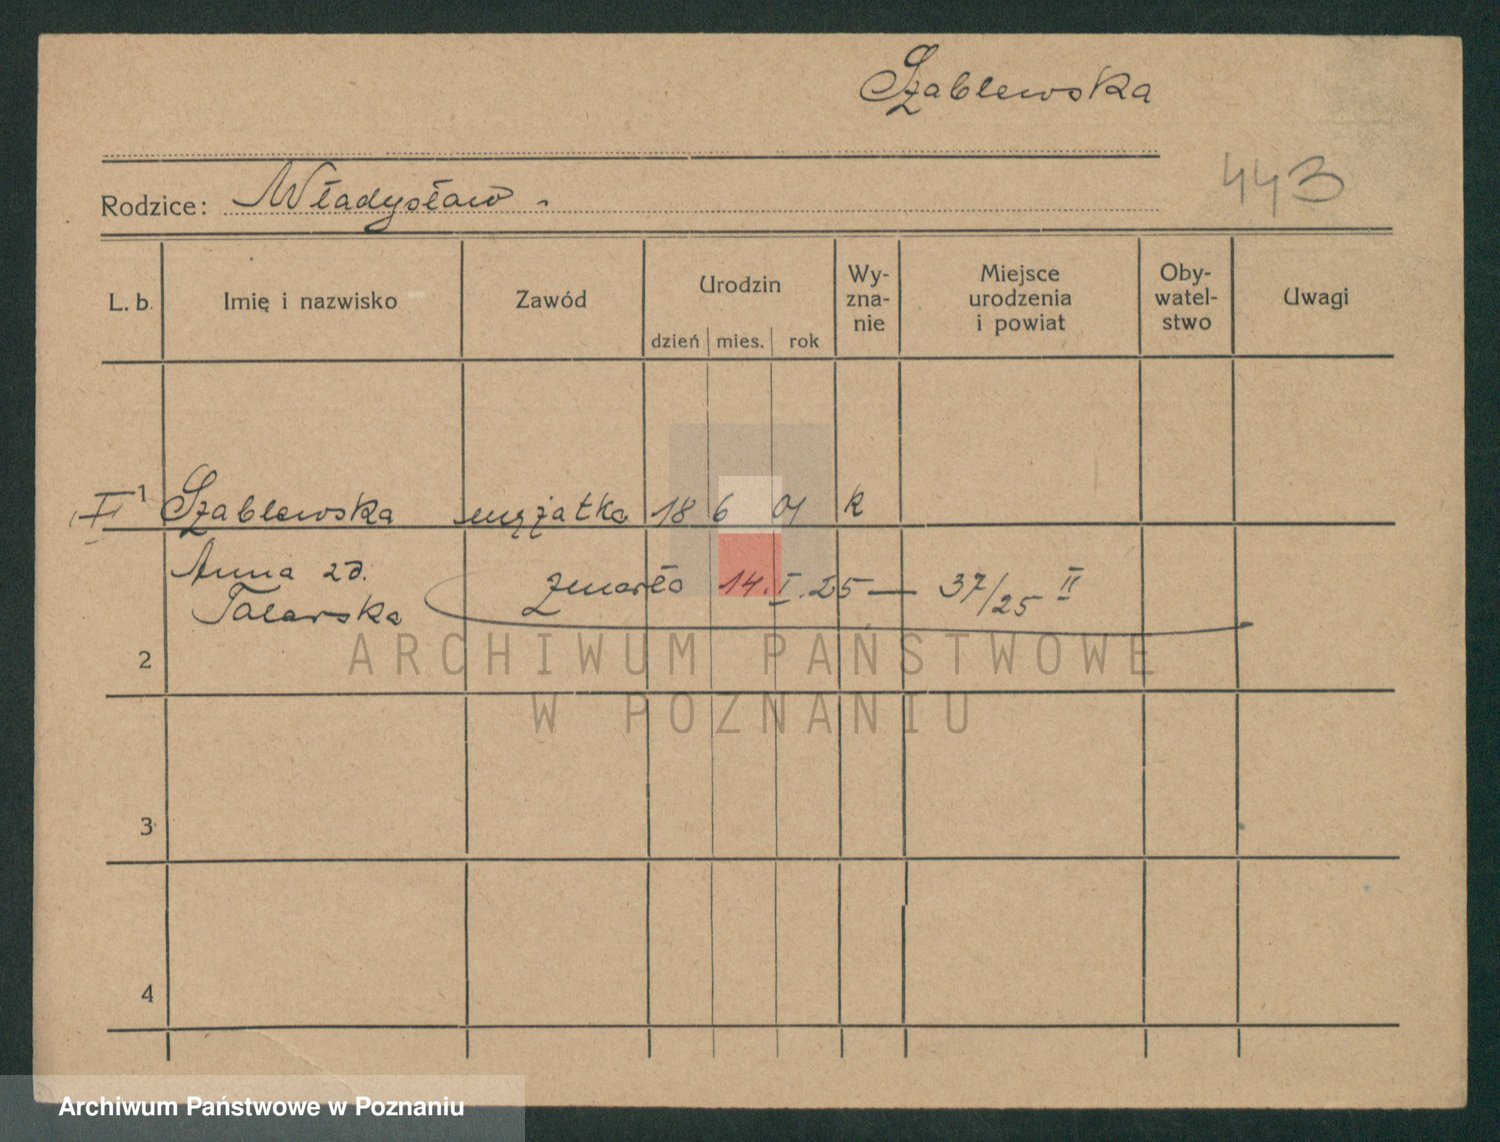 Szablewska
443
Rodzice: Władysław.
L. b. Imię i nazwisko Zawód Urodzin dzień mies. rok Wy-zna-nie Miejsce urodzenia i powiat Oby-watel-stwo Uwagi
II 1 Szablewska mężatka 18 6 01 k
Anna zd. Zmarła 14.I.25 — 37/25 II
Talarska
2
3
4
ARCHIWUM PAŃSTWOWE
W POZNANIU
Archiwum Państwowe w Poznaniu